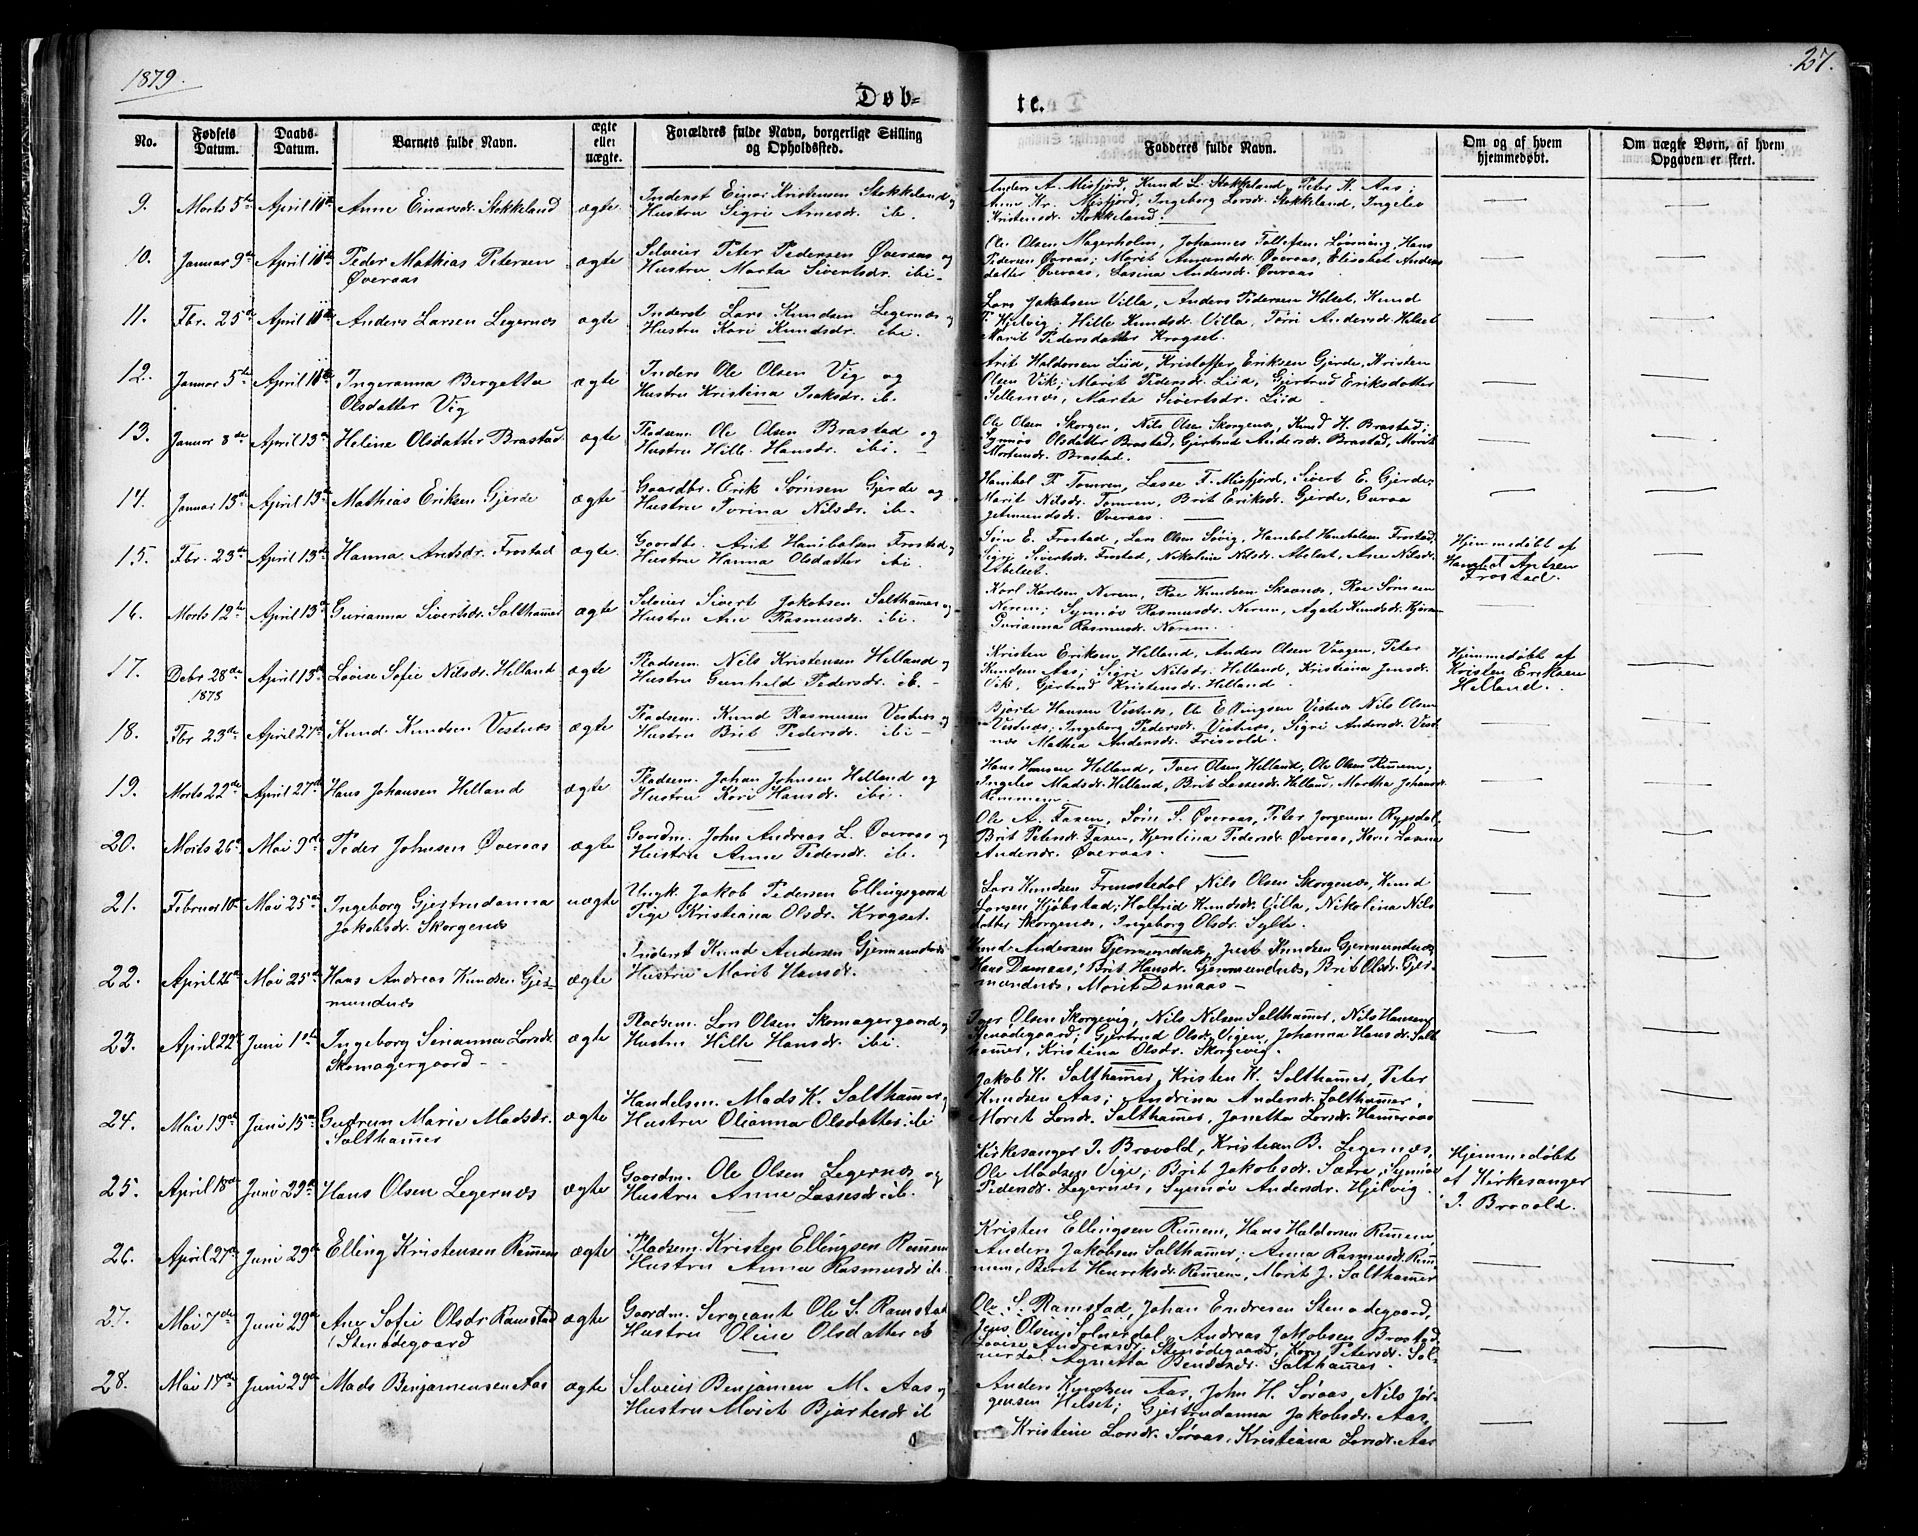 1879.
27.
Døb-
te.
No.
Fødsels Datum.
Daabs Datum.
Barnets fulde Navn.
ægte eller uægte.
Forældres fulde Navn, borgerlige Stilling og Opholdsted.
Fadderes fulde Navn.
Om og af hvem hjemmedøbt.
Om uægte Børn, af hvem Opgaven er skeet.
9. Marts 5te April 11te Anne Einarsdr. Stokkeland ægte Inderst Einar Kristensen Stokkeland og
Hustru Sigri Arnesdr. ib.
Anders A. Misfjord, Knud L. Stokkeland, Peter K. Aas;
Anne Kr. Misfjord, Ingeborg Larsdr. Stokkeland, Ingelev
Kristensdr. Stokkeland.
10. Januar 9de April 11te Peder Mathias Petersen
Øveraas
ægte Selveier Peter Pedersen Øveraas og
Hustru Marta Sivertsdr. ibi
Ole Olsen Magerholm, Johannes Tollefsen Løvning, Hans
Pedersen Øveraas; Marit Amundsdr. Øveraas, Elisabet Anders
datter Øveraas, Lasina Andersdr. Øveraas
11. Fbr. 25de April 11te Anders Larsen Legernæs ægte Inderst Lars Knudsen Legernæs og
Hustru Kari Knudsdr. ibi.
Lars Jakobsen Villa, Anders Pedersen Helset, Knud
T. Hjelvig, Hille Knudsdr. Villa, Tørri Andersdr. Helset
Marit Pedersdatter Krogset.
12. Januar 5te April 11te Ingeranna Bergetta
Olsdatter Vig
ægte Inders Ole Olsen Vig og
Hustru Kristina Isaksdr. ib.
Arit Haldorsen Liid, Kristoffer Eriksen Gjerde, Kristen
Olsen Vik; Marit Pedersdr. Liid, Gjertrud Eriksdatter
Sellenæs, Marta Sivertsdr. Liid.
13. Januar 8de April 13de Heline Olsdatter Brastad ægte Pladsem. Ole Olsen Brastad og
Hustru Hille Hansdr. ibi
Ole Olsen Skorgen, Nils Olsen Skorgenæs, Knud H. Brastad;
Synnøv Olsdatter Brastad, Gjertrud Andersdr. Brastad, Marit
Mortensdr. Brastad.
14. Januar 13de April 13de Mathias Eriksen Gjerde ægte Gaardbr. Erik Sørensen Gjerde og
Hustru Turina Nilsdr. ib.
Hanibal P. Tomren, Lasse F. Misfjord, Sivert E. Gjerde,
Marit Nilsdr. Tomren, Brit Eriksdr. Gjerde, Guroa
Jetmundsdr. Øveraas.
15. Fbr. 23de April 13de Hanna Aritsdr. Frostad ægte. Gaardbr. Arit Hanibalsen Frostad og
Hustru Hanna Olsdatter ibi
Søren E. Frostad, Lars Olsen Søvig, Hanibal Hanibalsen Frostad,
Sigri Sivertsdr. Frostad, Nikoline Nilsdr. Abelset, Ane Nilsdr.
Abelset.
Hjemmedøbt af
Hanibal Aritsen
Frostad.
16. Marts 12te April 13de Gurianna Sivertsdr. Salthammer ægte Selveier Sivert Jakobsen Salthamer og
Hustru Ane Rasmusdr. ibi.
Karl Karlsen Nerem, Roe Knudsen Skaanæs, Roe Sørensen
Nerem; Synnøv Rasmusdr. Nerem, Agate Knudsdr.
Gurianna Rasmusdr. Nerem.
17. Debr. 28de
1878
April 13de Lovise Sofie Nilsdr. Helland ægte Pladsem. Nils Kristensen Helland og
Hustru Gunhild Pedersdr. ib.
Kristen Eriksen Helland, Anders Olsen Vaagen, Peter
Knudsen Aas; Sigri Nilsdr. Helland, Kristiana Jensdr.
Vik, Gjertrud Kristensdr. Helland.
Hjemmedøbt af
Kristen Eriksen
Helland.
18. Fbr 23de April 27de Knud Knudsen Vestnæs ægte Pladsem. Knud Rasmusen Vestnæs og
Hustru Brit Pedersdr. ibi
Bjørte Hansen Vestnæs, Ole Ellingsen Vestnæs Nils Olsen
Vestnæs; Ingeborg Pedersdr. Vestnæs, Sigri Andersdr. Vest
næs Mathea Andersdr. Frisvold.
19. Marts 22de April 27de Hans Johansen Helland ægte Pladsem. Johan Johnsen Helland og
Hustru Kari Hansdr. ibi.
Hans Hansen Helland, Iver Olsen Helland, Ole Olsen Remem;
Ingelev Madsdr. Helland, Brit Lassesdr. Helland, Martha Johansdr.
Remmem.
20. Marts 26de Mai 9de Peder Johnsen Øveraas ægte Gaardm. John Andreas L. Øveraas og
Hustru Anne Pedersdr. ib.
Ole A. Faxen, Søren S. Øveraas, Peter Jørgensen Rypdal,
Brit Petersdr. Faxen, Kjerstina Pedersdr. Øveraas, Karn Lasina
Andersdr. Øveraas.
21. Februar 10de Mai 25de Ingeborg Gjertrudanna
Jakobsdr. Skorgenæs
uægte Ungk. Jakob Pedersen Ellingsgaard
Pige Kristiana Olsdr. Krogset.
Lars Knudsen Fremstedal Nils Olsen Skorgenæs, Knud
Larsen Kjøbstad; Halfrid Knudsdr. Villa, Nikolina Nils
datter Skorgenæs, Ingeborg Olsdr. Sylte.
22. April 26de Mai 25de Hans Andreas Knudsen Gjer-
mundnæs
ægte Inderst Knud Andersen Gjermundnæs
Hustru Marit Hansdr.
Knud Andersen Gjermundnæs, Just Knudsen Gjermundnæs
Hans Damaas; Brit Hansdr. Gjermundnæs, Brit Olsdr. Gjer-
mundnæs, Marit Damaas
23. April 22de Juni 1ste Ingeborg Serianna Larsdr
Skomagergaard
ægte Pladsem. Lars Olsen Skomagergaard og
Hustru Hille Hansdr. ibi.
Iver Olsen Skorgevig, Nils Nilsen Salthamer, Nils Hansen
Stenødegaard, Gjertrud Olsdr. Vigen, Johanna Hansdr. Salt
hamer, Kristina Olsdr. Skorgevig.
24. Mai 19de Juni 15de Gudrun Marie Madsdr.
Salthamer
ægte Handelsm. Mads K. Salthamer og
Hustru Olianna Olsdatter ibi
Jakob K. Salthamer, Kristen K. Salthamer, Peter
Knudsen Aas; Andrina Andersdr. Salthamer,
Marit Larsdr. Salthamer, Janetha Larsdr. Hameraas
25. April 18de Juni 29de Hans Olsen Legernæs ægte Gaardm. Ole Olsen Legernæs og
Hustru Anne Lassesdr. ib.
Kirkesanger I. Brovold, Kristian B. Legernæs,
Ole Madsen Vige; Brit Jakobsdr. Sætre, Synnøv
Pedersdr. Legernæs, Synnøv Andersdr. Hjelvig.
Hjemmedøbt
af Kirkesanger
I. Brovold.
26. April 27de Juni 29de Elling Kristensen Remem ægte Pladsem. Kristen Ellingsen Remem
Hustru Anna Rasmusdr ib.
Kristen Ellingsen Remem, Hans Haldorsen Remem,
Anders Jakobsen Salthamer; Anna Rasmusdr. Rem
mem, Beret Henriksdr. Remem, Marit J. Salthamer
27. Mai 7de Juni 29de Ane Sofie Olsdr. Ramstad
(Stenødegaard
ægte Gaardm. Sergeant Ole S. Ramstad
Hustru Oline Olsdatter ib
Ole S. Ramstad, Johan Endresen Stenødegaard,
Jens Olsen Solnørdal, Andreas Jakobsen Brastad,
Lovise Andreasdr. Stenødegaard, Karn Petersdr. Sol-
nørdal Agnetta Benddsdr. Salthamer.
28. Mai 17de Juni 29de Mads Benjamensen Aas ægte Selveier Benjamen M. Aas og
Hustru Marit Bjørtesdr ib
Anders Knudsen Aas, John H. Søraas, Nils Jør-
gensen Helset; Gjertrudanna Jakobsdr. Aas,
Kristine Larsdr. Søraas, Kristiana Larsdr. Aas